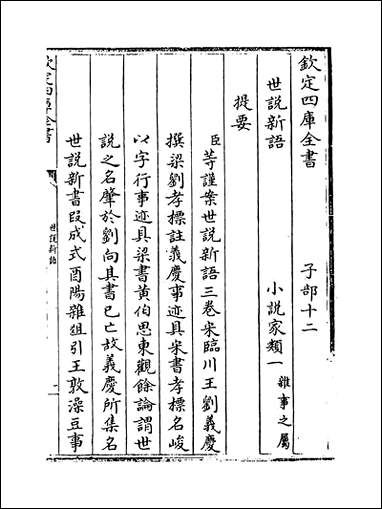 欽定四庫全書　子部十二
世說新語　小說家類一雜事之屬
提要
臣等謹案世說新語三卷宋臨川王劉義慶
撰梁劉孝標註義慶事迹具宋書孝標名峻
以字行事迹具梁書黃伯思東觀餘論謂世
說之名肇於劉向其書已亡故義慶所集名
世說新書段成式酉陽雜俎引王敦澡豆事
欽定四庫全書
世說新語